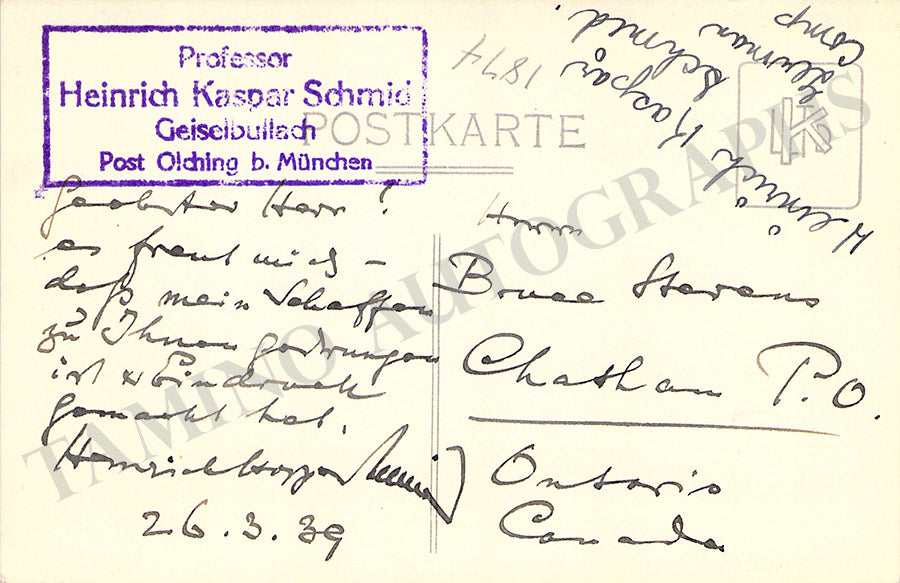 Professor
Heinrich Kaspar Schmid
Geiselbullach
Post Olching b. München
POSTKARTE
1874
Heinrich Kaspar
Schmid
German
Comp
Geehrter Herr!
es freut mich –
daß mein Schaffen
zu Ihnen gedrungen
ist & Eindruck
gemacht hat.
Heinrich Kaspar Schmid
26.3.39
Herrn
Bruce Stevens
Chatham P.O.
Ontario
Canada
TAMINO AUTOGRAPHS